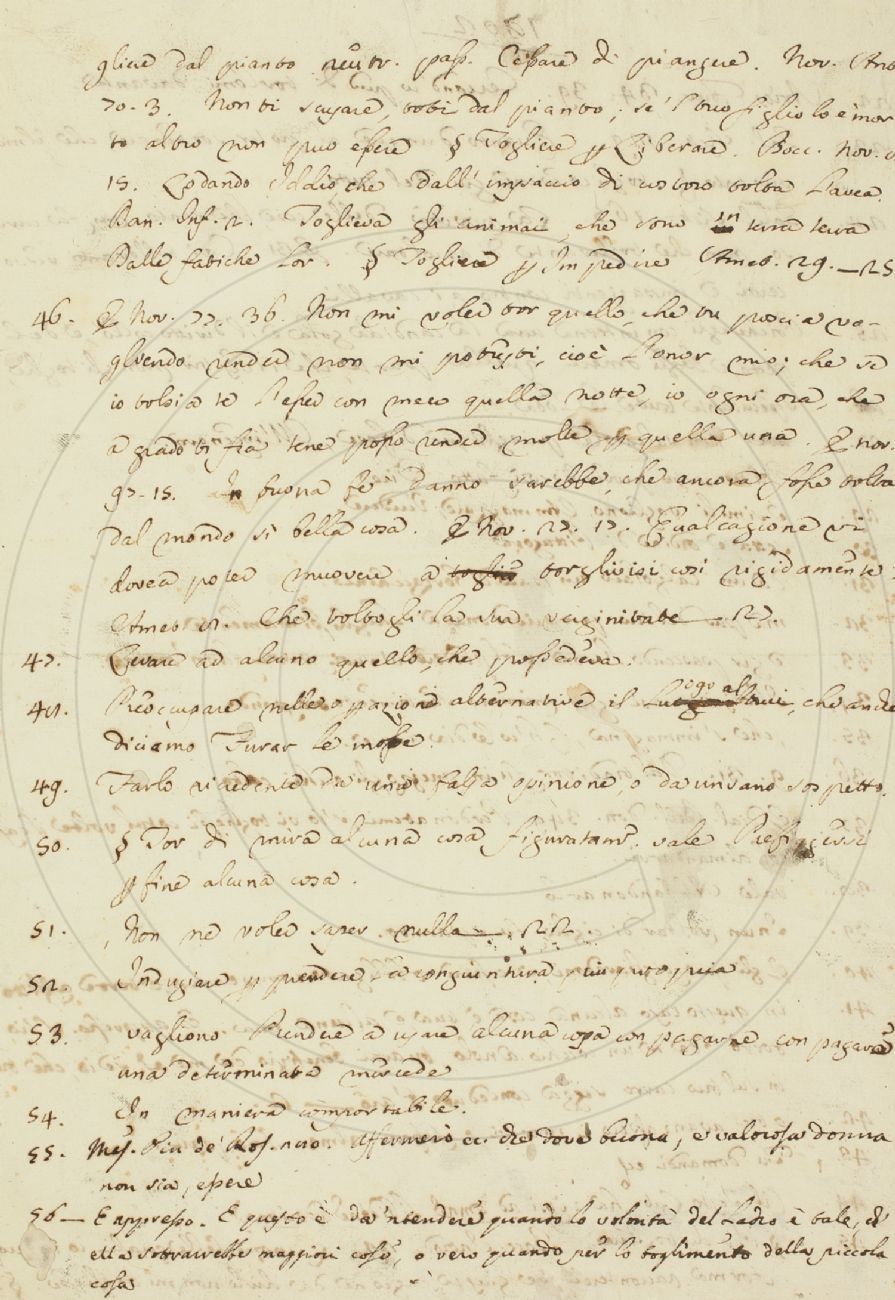 gliere dal pianto neutr. pass. Cessare di piangere. Nov. Ant
70. 3. Non ti scusare, toti dal pianto; se 'l tuo figliolo è mor
to altro non può essere § Togliere p Liberare. Bocc. Nov.
15. Lodando Iddio che dall' impaccio di costoro tolta l'avea.
Dan. Inf. 2. Toglieva gli animai, che sono in terra terra
Dalle fatiche lor. § Togliere p Impedire Amet. 29. — 25
46. Nov. 77. 36. Non mi voler tor quello, che tu poscia vo-
gliendo render non mi potresti, cioè l'onor mio; che se
io tolsi a te l'esser con meco quella notte, io ogni ora, che
a grado ti fia tene posso render molte p quella una. nov.
97. 15. In buona fe' danno sarebbe, che ancora fosse tolta
dal mondo sì bella cosa. Nov. 27. 17. Qual cagione vi
dovea poter muovere a torglivisi così rigidamente?
Amet. Che toltogli la sua virginitate — 27.
47. Levare ad alcuno quello, che possedeva.
48. Preoccupare nelle opazione alternative il Luogo altrui, che anche
diciamo Furar le mosse.
49. Farlo ricredente da una falsa opinione, o da un vano sospetto.
50. § Tor di mira alcuna cosa figuratam. vale Prefiggersi
p fine alcuna cosa.
51. , Non ne voler saper nulla — 22.
52. Indugiare p prendere la congiuntura più propria
53. vagliono Prendere a usare alcuna cosa con pagarne con pagare
una determinata mercede
54. In maniera comportabile.
55. Mes. Cin de' Ros. Affermerò ec. che dove buona, e valorosa donna
non sia, essere
56 — E appresso. E questo è da 'ntendere quando lo volontà del Ladro è tale, ch'
ella sottrarrebbe maggiori cose, o vero quando per lo toglimento della piccola
cosa